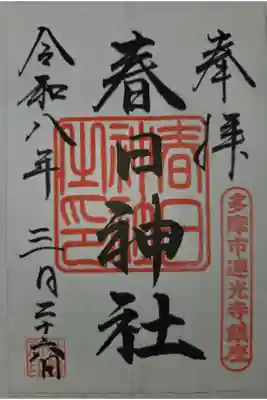 奉拝
多摩市連光寺鎮座
春日神社
春日
神社
之印
令和八年三月二十六日